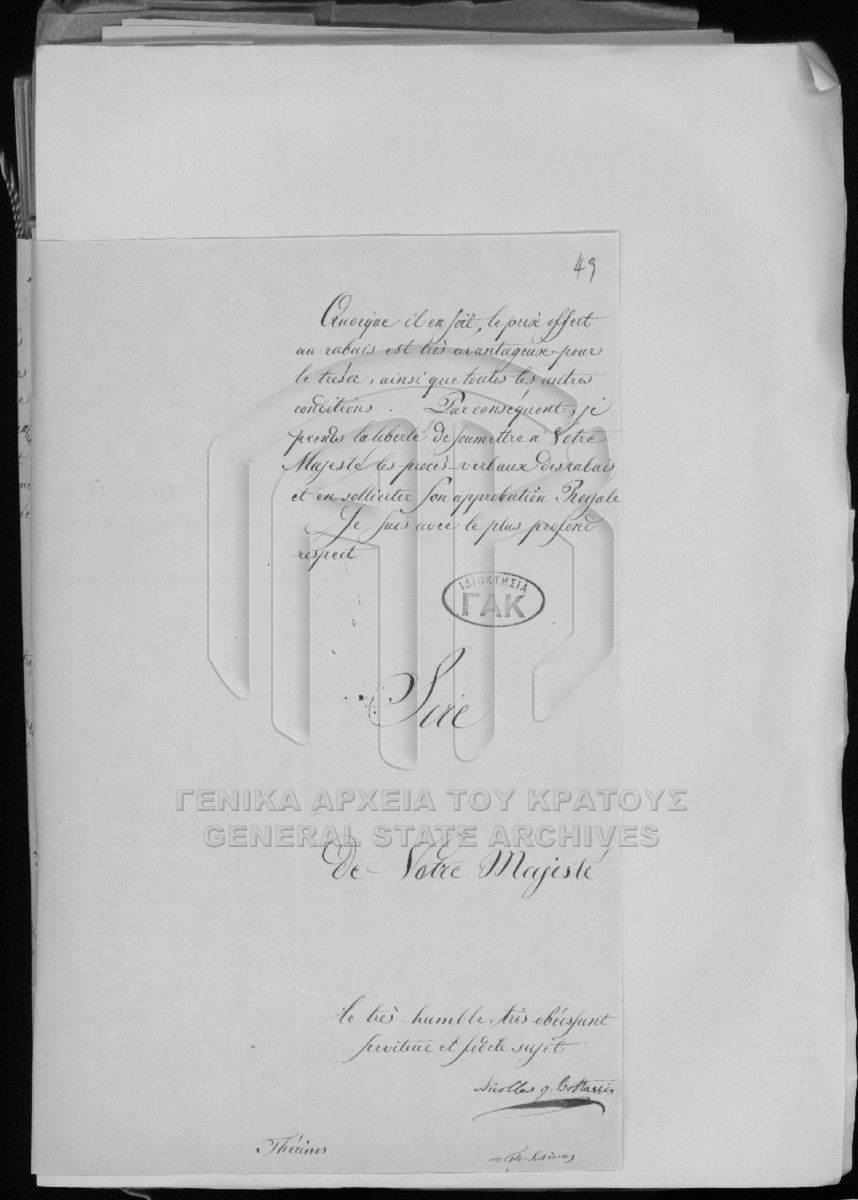 49
Quoique il en soit, le prix offert
au rabais est très avantageux pour
le trésor, ainsi que toutes les autres
conditions. Par conséquent, je
prends la liberté de soumettre à Votre
Majesté les procès-verbaux des rabais
et en solliciter son approbation Royale
Je suis avec le plus profond
respect
ΙΔΙΟΚΤΗΣΙΑ
ΓΑΚ
Sire
ΓΕΝΙΚΑ ΑΡΧΕΙΑ ΤΟΥ ΚΡΑΤΟΥΣ
GENERAL STATE ARCHIVES
De Votre Majesté
le très-humble, très obéissant
serviteur et fidele sujet
Nicolas g.